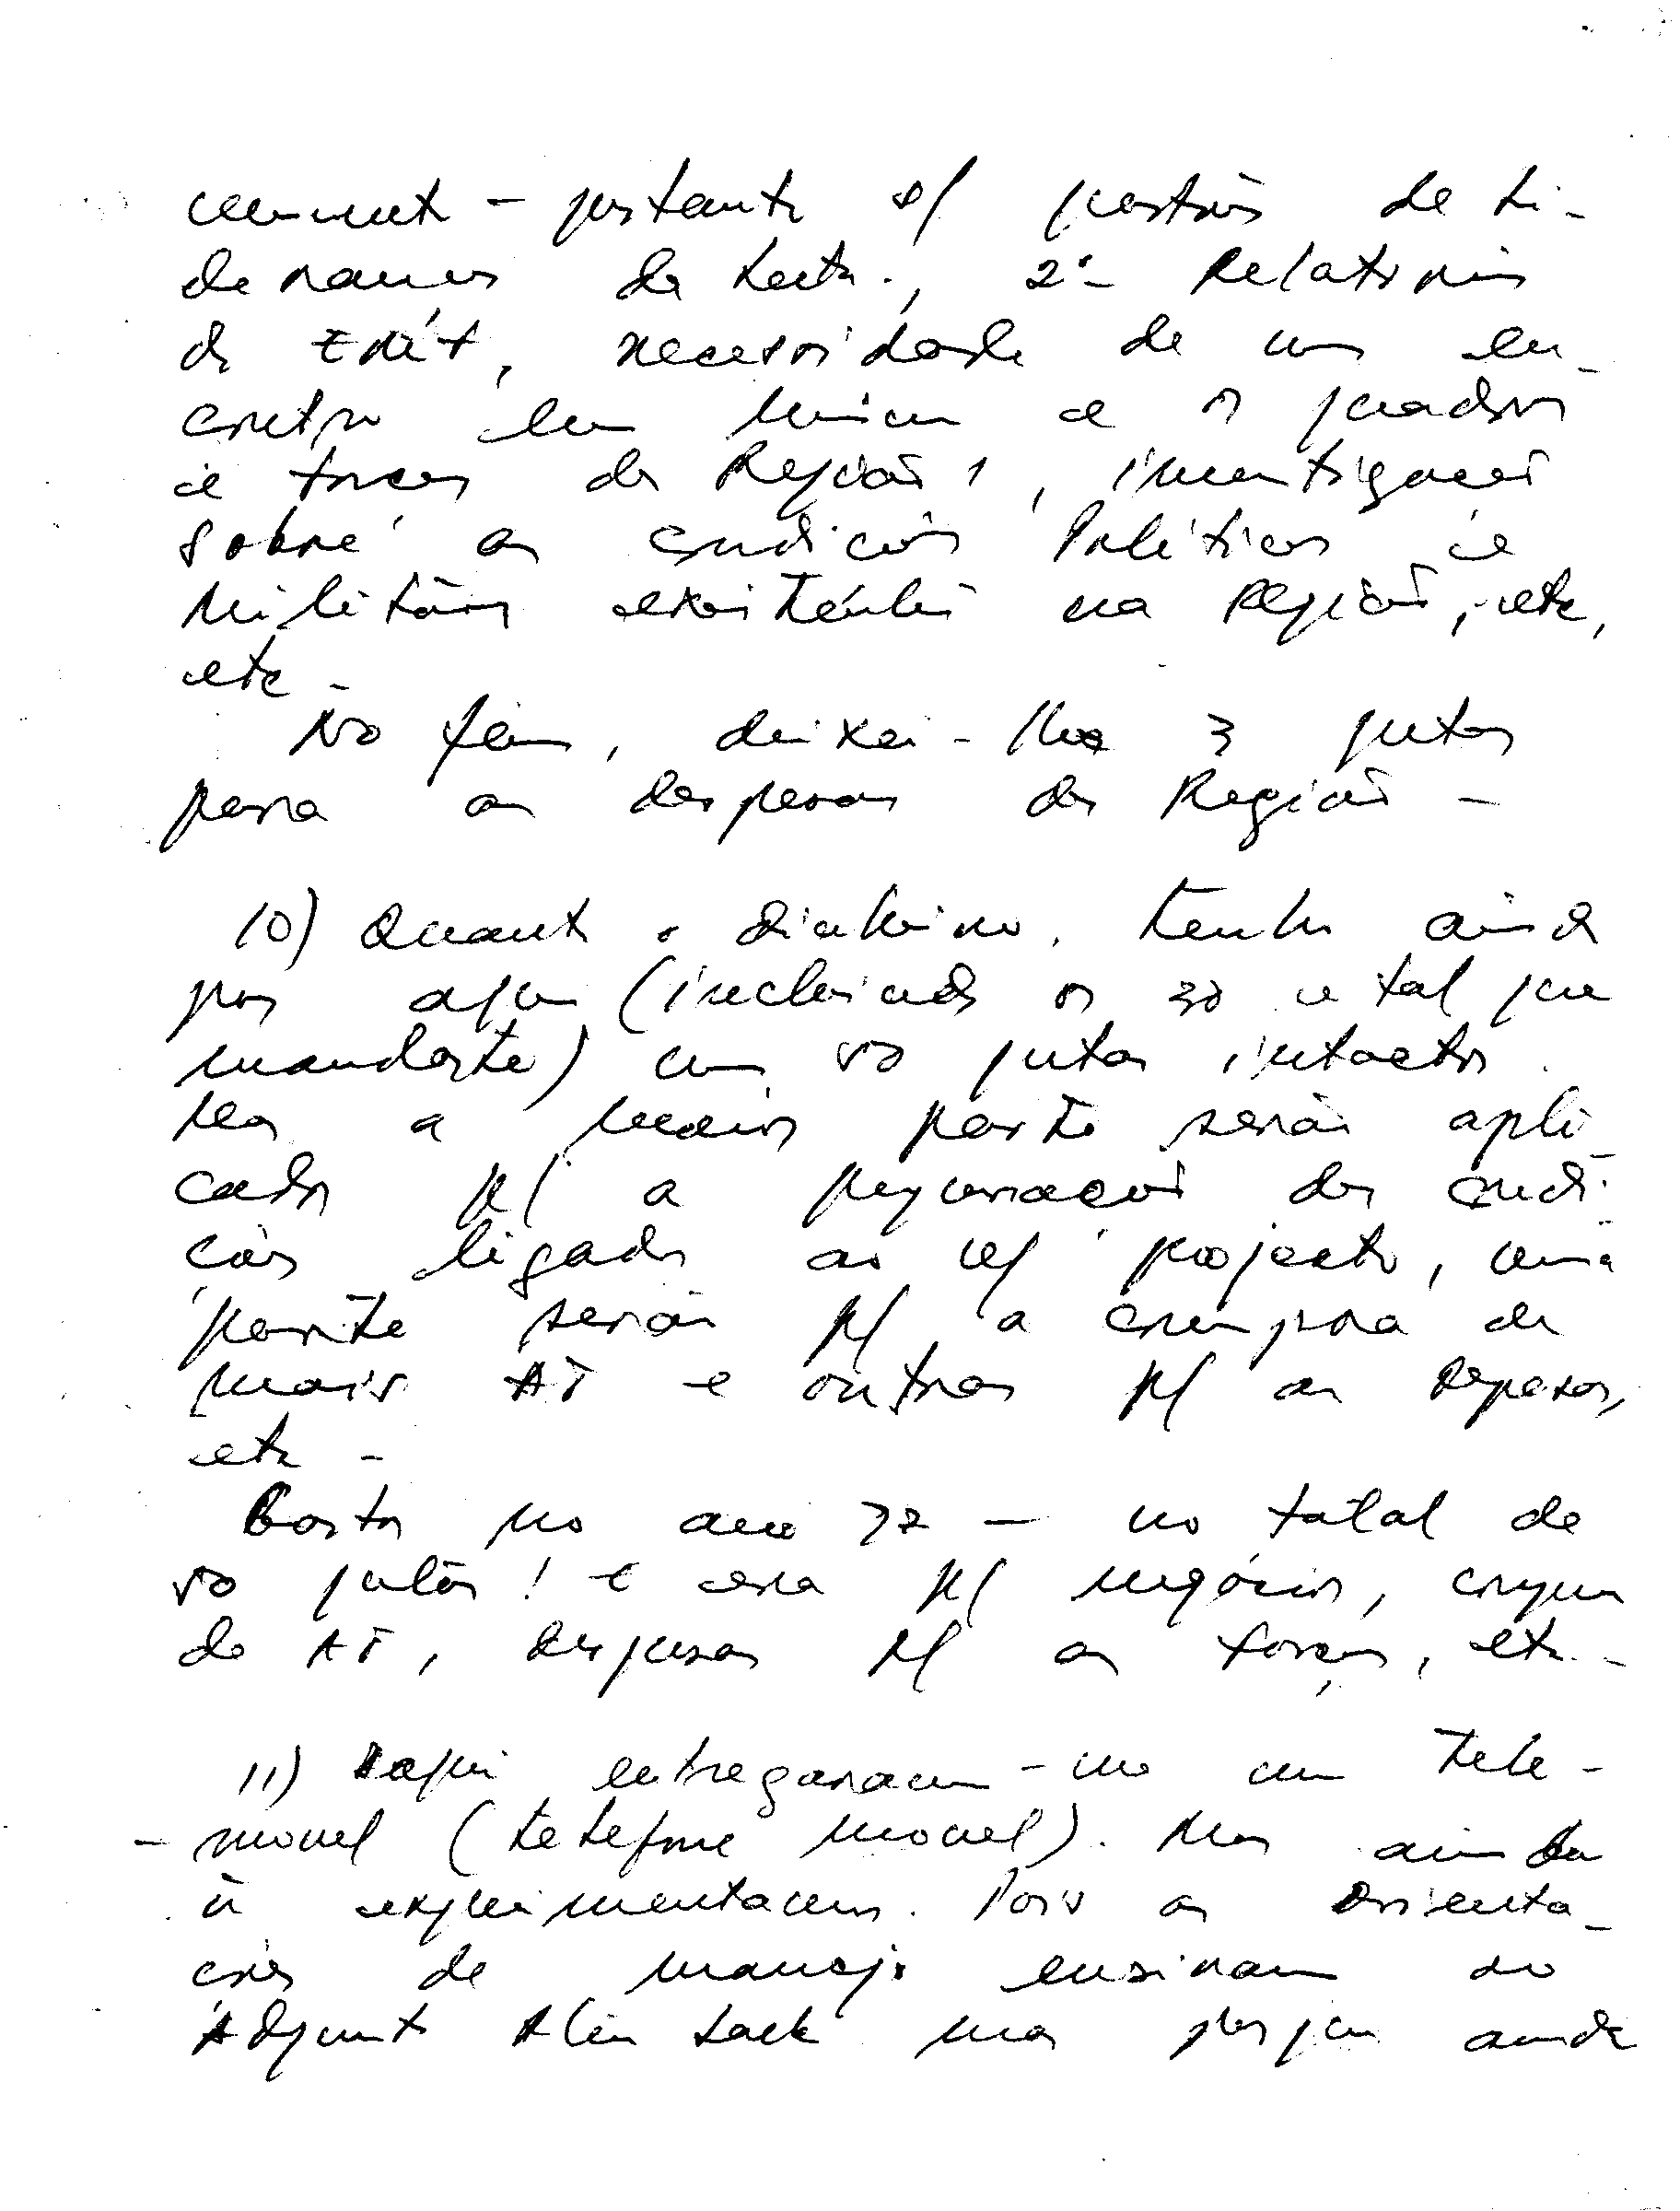 - portanto s/ questões de li-
derança da luta, 2º- Relatório
de , necessidade de um en-
contro em com os quadros
e forças da Região 1, investigação
sobre as condições Políticas e
Militares existentes na Região, etc,
etc -
No fim, deixei-lhe 3 putos
para as despesas da Região -
10) Quanto o dinheiro, tenho ainda
por aqui (incluindo os 30 e tal que
mandaste) uns 50 putos intactos.
Mas a maior parte será apli-
cado p/ a preparação das condi-
ções ligado ao n/ projecto, uma
parte será p/ a compra de
mais AT e outras p/ as despesas,
etc -
Gastos no ano 92 - no total de
50 putos! E era p/ negócios, compra
de AT, despesas p/ as forças, etc -
11) Daqui entregaram-me um Tele-
-movel (telefone movel). Mas ainda
ñ experimentamos. Pois as orienta-
ções de manejo ensinaram ao
Adjunto mas porque ainda